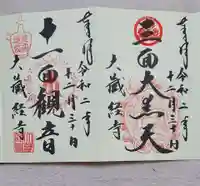 奉拝 令和二年
十二月三十日
三面大黒天
大蔵経寺
奉拝 令和二年
十二月三十日
十一面観音
大蔵経寺